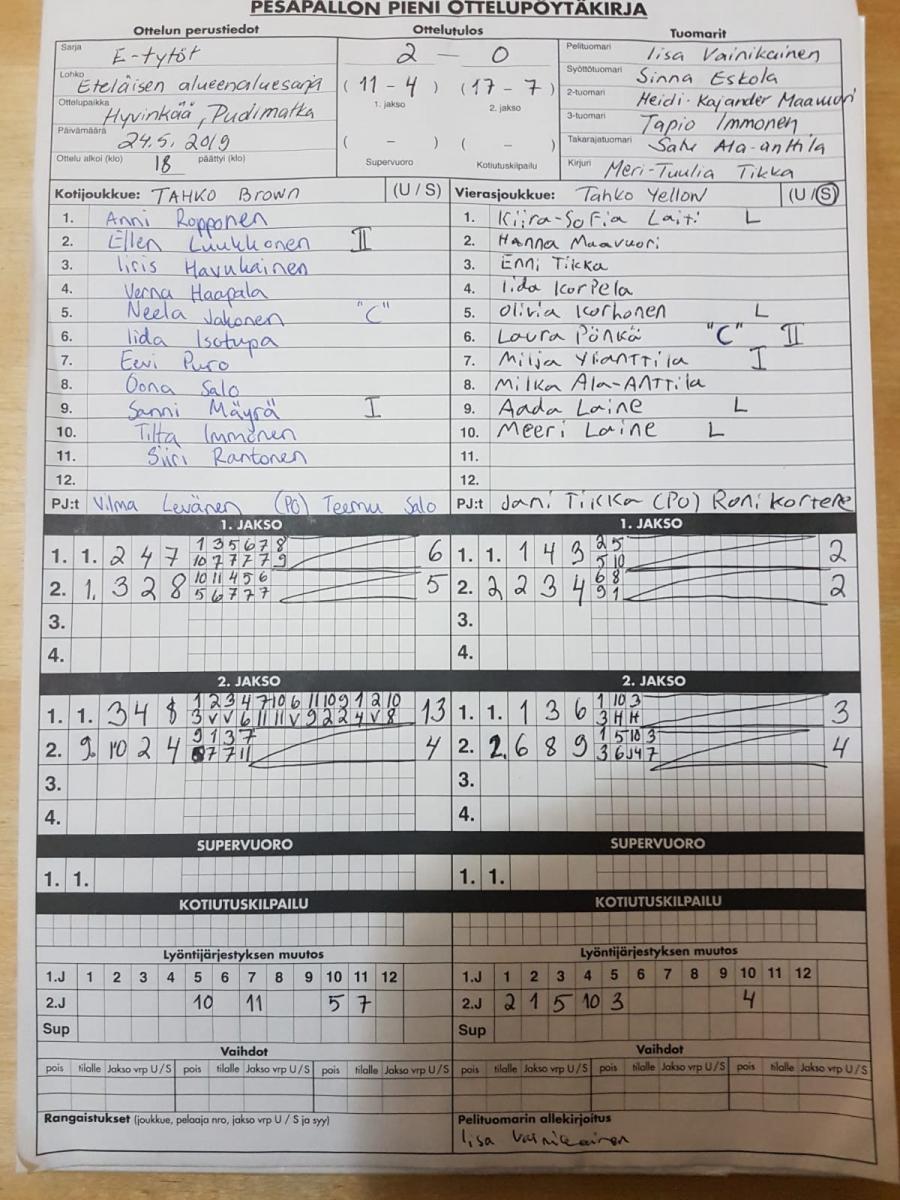 PESÄPALLON PIENI OTTELUPÖYTÄKIRJA
Ottelun perustiedot Ottelutulos Tuomarit
Sarja E-tytöt 2 — 0 Pelituomari Iisa Vainikainen
Lohko Eteläisen alueenaluesarja (11 - 4) (17 - 7) Syöttötuomari Sinna Eskola
1. jakso 2. jakso
Ottelupaikka Hyvinkää, Pudimatka 2-tuomari Heidi-Kajander Maavuori
Päivämäärä 24.5. 2019 ( - ) ( - ) 3-tuomari Tapio Immonen
Takarajatuomari Ala-anttila
Ottelu alkoi (klo) 18 päättyi (klo) Supervuoro Kotiutuskilpailu Kirjuri Meri-Tuulia Tikka
Kotijoukkue: TAHKO Brown (U / S) Vierasjoukkue: Tahko Yellow (U / S)
1. Anni Ropponen 1. Kiira-Sofia Laiti L
2. Ellen Luukkonen II 2. Hanna Maavuori
3. Iiris Havukainen 3. Enni Tikka
4. Verna Haapala 4. Iida Korpela
5. Neela Jakonen "C" 5. Olivia Korhonen L
6. Iida Isotupa 6. Laura Pönkä "C" II
7. Eevi Puro 7. Milja Ylianttila I
8. Oona Salo 8. Milka Ala-Anttila
9. Sanni Mäyrä I 9. Aada Laine L
10. Tilta Immonen 10. Meeri Laine L
11. Siiri Rantonen 11.
12. 12.
PJ:t Vilma Levänen (PO) Teemu Salo PJ:t Jani Tikka (PO) Roni Kortene
1. JAKSO 1. JAKSO
1. 1. 2 4 7 1 3 5 6 7 8 6 1. 1. 1 4 3 2 5 2
10 7 7 7 7 9 5 10
2. 1. 3 2 8 10 11 4 5 6 5 2. 2 2 3 4 6 8 2
5 6 7 7 7 9 1
3. 3.
4. 4.
2. JAKSO 2. JAKSO
1. 1. 3 4 8 1 2 3 4 7 10 6 11 10 9 1 2 10 13 1. 1. 1 3 6 1 10 3 3
3 V V 6 11 11 V 9 2 2 4 V 8
2. 9. 10 2 4 9 1 3 7 4 2. 2. 6 8 9 1 5 10 3 4
7 7 11
3. 3.
4. 4.
SUPERVUORO SUPERVUORO
1. 1. 1. 1.
KOTIUTUSKILPAILU KOTIUTUSKILPAILU
Lyöntijärjestyksen muutos Lyöntijärjestyksen muutos
1.J 1 2 3 4 5 6 7 8 9 10 11 12 1.J 1 2 3 4 5 6 7 8 9 10 11 12
2.J 10 11 5 7 2.J 2 1 5 10 3 4
Sup Sup
Vaihdot Vaihdot
pois tilalle Jakso vrp U / S pois tilalle Jakso vrp U / S pois tilalle Jakso vrp U / S pois tilalle Jakso vrp U / S pois tilalle Jakso vrp U / S pois tilalle Jakso vrp U / S
Rangaistukset (joukkue, pelaaja nro, jakso vrp U / S ja syy) Pelituomarin allekirjoitus
Iisa Vainikainen